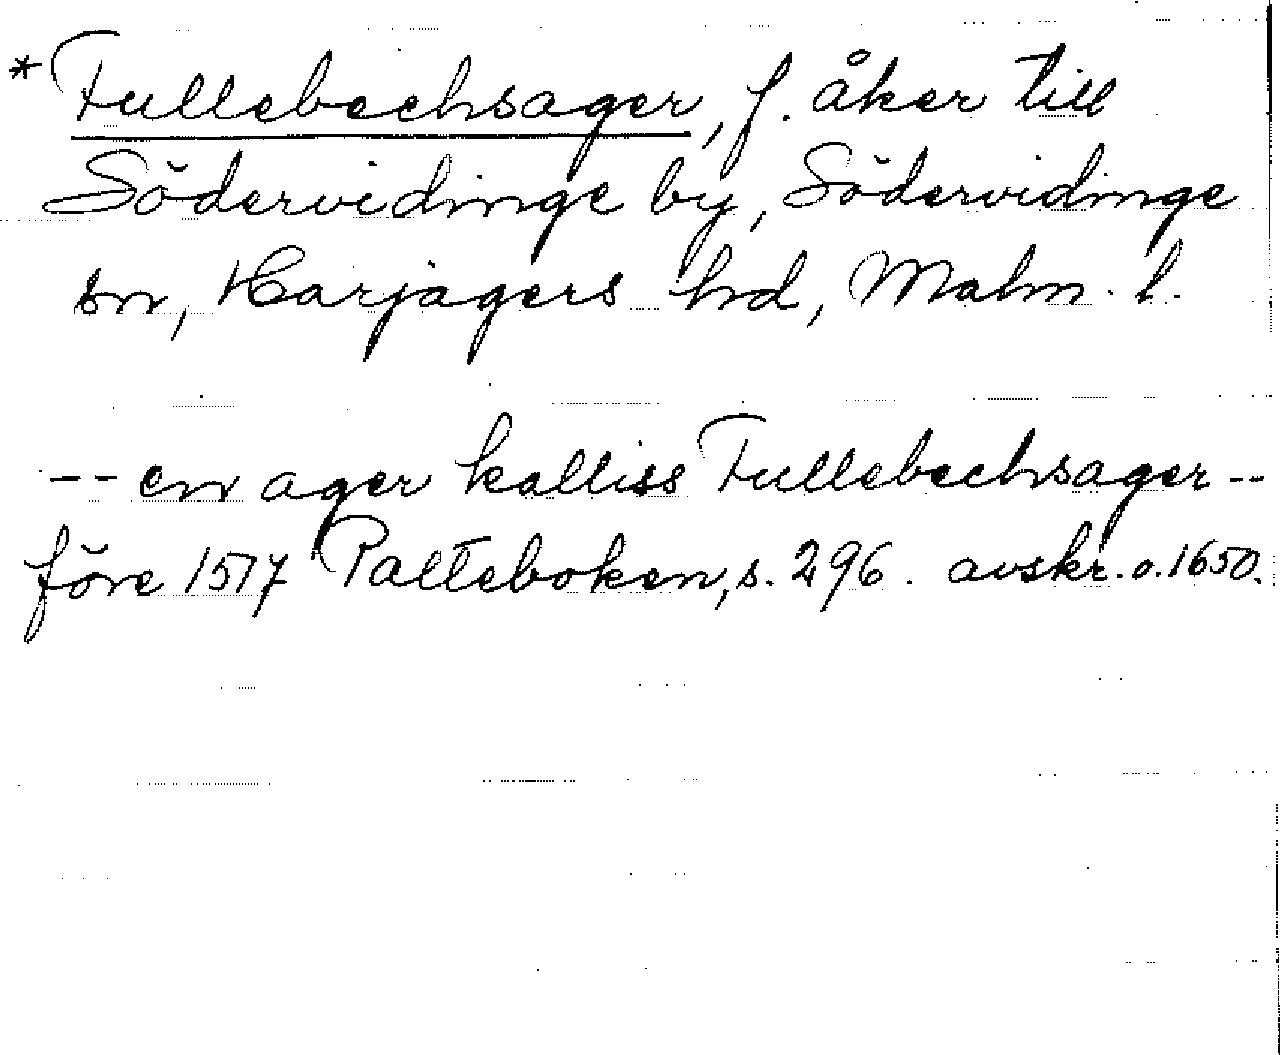 * Fullebechsager, f. åker till
Södervidinge by, Södervidinge
sn, Harjagers hd, Malm. l.
-- en ager kalliss Fullebechsager --
före 1517 Palteboken, s. 296. avskr. o. 1650.